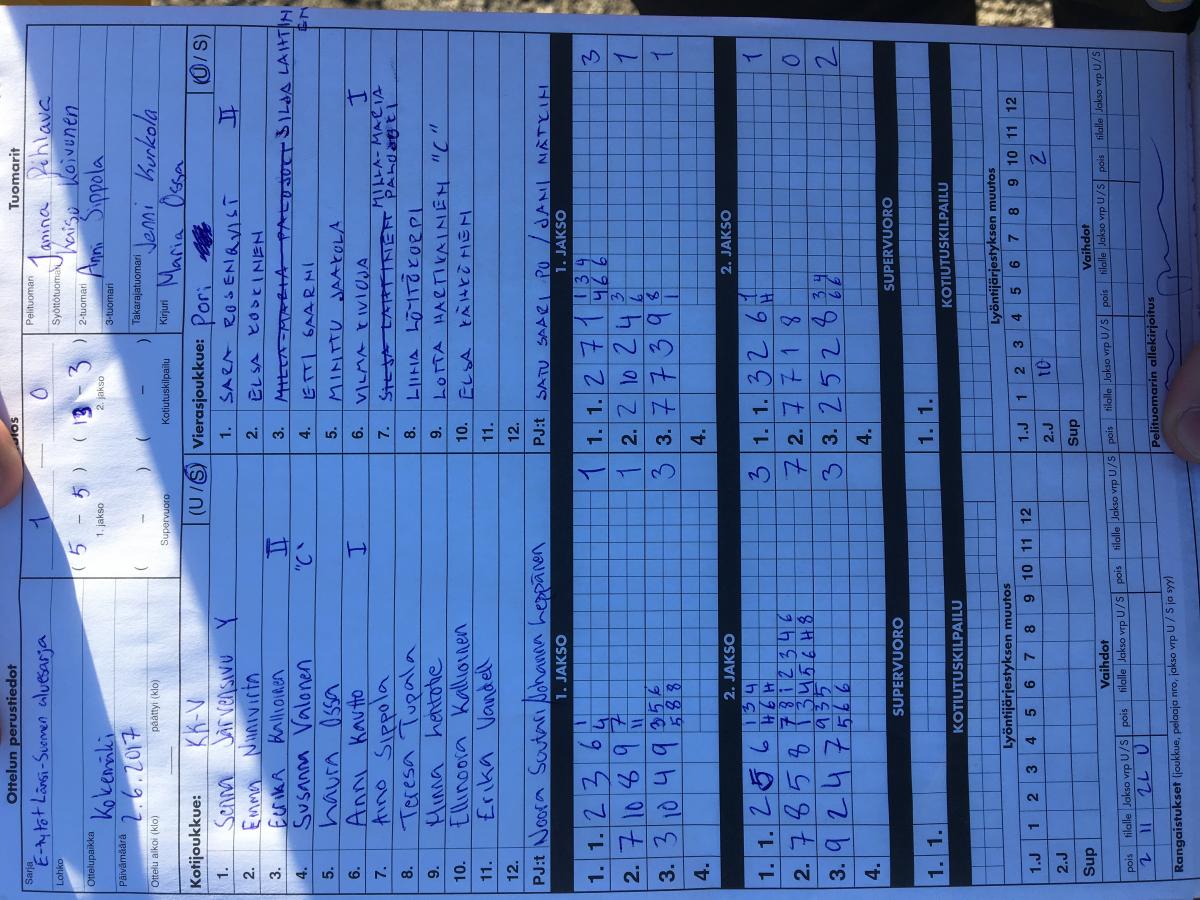 Ottelun perustiedot
Sarja E-tytöt Länsi-Suomen aluesarja
Lohko
Ottelupaikka Kokemäki
Päivämäärä 2.6.2017
Ottelu alkoi (klo) päättyi (klo)
1 0
( 5 - 5 ) ( 13 - 3 )
1. jakso 2. jakso
( - ) ( - )
Supervuoro Kotiutuskilpailu
Tuomarit
Pelituomari Janina Pihlava
Syöttötuomari Kaisu Koivunen
2-tuomari Anni Sippola
3-tuomari
Takarajatuomari Jenni Kunkola
Kirjuri Maria Ossa
Kotijoukkue: KK-V (U / S)
1. Senna Järvensivu Y
2. Emma Niiniviita
3. Eerika Kallioinen II
4. Susanna Valonen "C"
5. Laura Ossa
6. Anni Kautto I
7. Ano Sippola
8. Teresa Tupala
9. Minna Lehtone
10. Ellinoora Kallioinen
11. Erika Vandell
12.
PJ:t Noora Suutari/Johanna Leppänen
Vierasjoukkue: Pori (U / S)
1. SARA ROSENQVIST II
2. ELSA KOSKINEN
3. MILLA-MARIA PALOJOKI SILJA LAHTINEN
4. ETTI SAARNI
5. MINTTU JAAKOLA
6. VILMA KIVIOJA I
7. SILJA LAHTINEN MILLA-MARIA PALOJOKI
8. LIINA LÖITÖKORPI
9. LOTTA HARTIKAINEN "C"
10. ELSA KÄHKÖNEN
11.
12.
PJ:t SATU SAARI PU / JANI MÄTKIN
1. JAKSO
1. 1. 2 3 6 1 4 1
2. 7 10 8 9 7 11 1
3. 3 10 4 9 3 5 6 5 8 8 3
4.
1. JAKSO
1. 1. 2 7 1 1 3 4 4 6 6 3
2. 2 10 2 4 3 6 1
3. 7 7 3 9 8 1 1
4.
2. JAKSO
1. 1. 2 5 6 1 3 4 4 6 H 3
2. 7 8 5 8 7 8 1 2 3 4 6 1 3 4 5 6 H 8 7
3. 9 2 4 7 9 3 5 5 6 6 3
4.
2. JAKSO
1. 1. 3 2 6 1 H 1
2. 7 7 1 8 0
3. 2 5 2 8 3 4 6 6 2
4.
SUPERVUORO
1. 1.
SUPERVUORO
1. 1.
KOTIUTUSKILPAILU
KOTIUTUSKILPAILU
Lyöntijärjestyksen muutos
1.J 1 2 3 4 5 6 7 8 9 10 11 12
2.J
Sup
Lyöntijärjestyksen muutos
1.J 1 2 3 4 5 6 7 8 9 10 11 12
2.J 10 2
Sup
Vaihdot
pois tilalle Jakso vrp U / S pois tilalle Jakso vrp U / S pois tilalle Jakso vrp U / S
2 11 2L U
Vaihdot
pois tilalle Jakso vrp U / S pois tilalle Jakso vrp U / S pois tilalle Jakso vrp U / S
Rangaistukset (joukkue, pelaaja nro, jakso vrp U / S ja syy)
Pelituomarin allekirjoitus